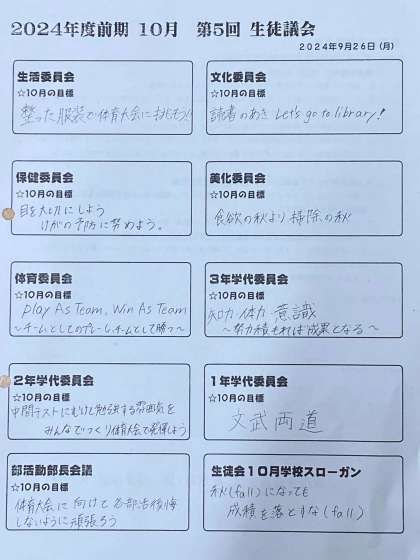 2024年度前期 10月 第5回 生徒議会
2024年9月26日(月)
生活委員会
☆10月の目標
整った服装で体育大会に挑もう!!
文化委員会
☆10月の目標
読書のあき Let's go to library!
保健委員会
☆10月の目標
目を大切にしよう
けがの予防に努めよう。
美化委員会
☆10月の目標
食欲の秋より掃除の秋
体育委員会
☆10月の目標
Play As Team, Win As Team
~チームとしてプレーし、チームとして勝つ~
3年学代委員会
☆10月の目標
知力 体力 意識
~努力積もれば成果となる~
2年学代委員会
☆10月の目標
中間テストにむけて勉強する雰囲気を
みんなでつくり体育大会で発揮しよう
1年学代委員会
☆10月の目標
文武両道
部活動部長会議
☆10月の目標
体育大会に向けて各部活後悔
しないように頑張ろう
生徒会10月学校スローガン
秋(fall)になっても
成績を落とすな(fall)